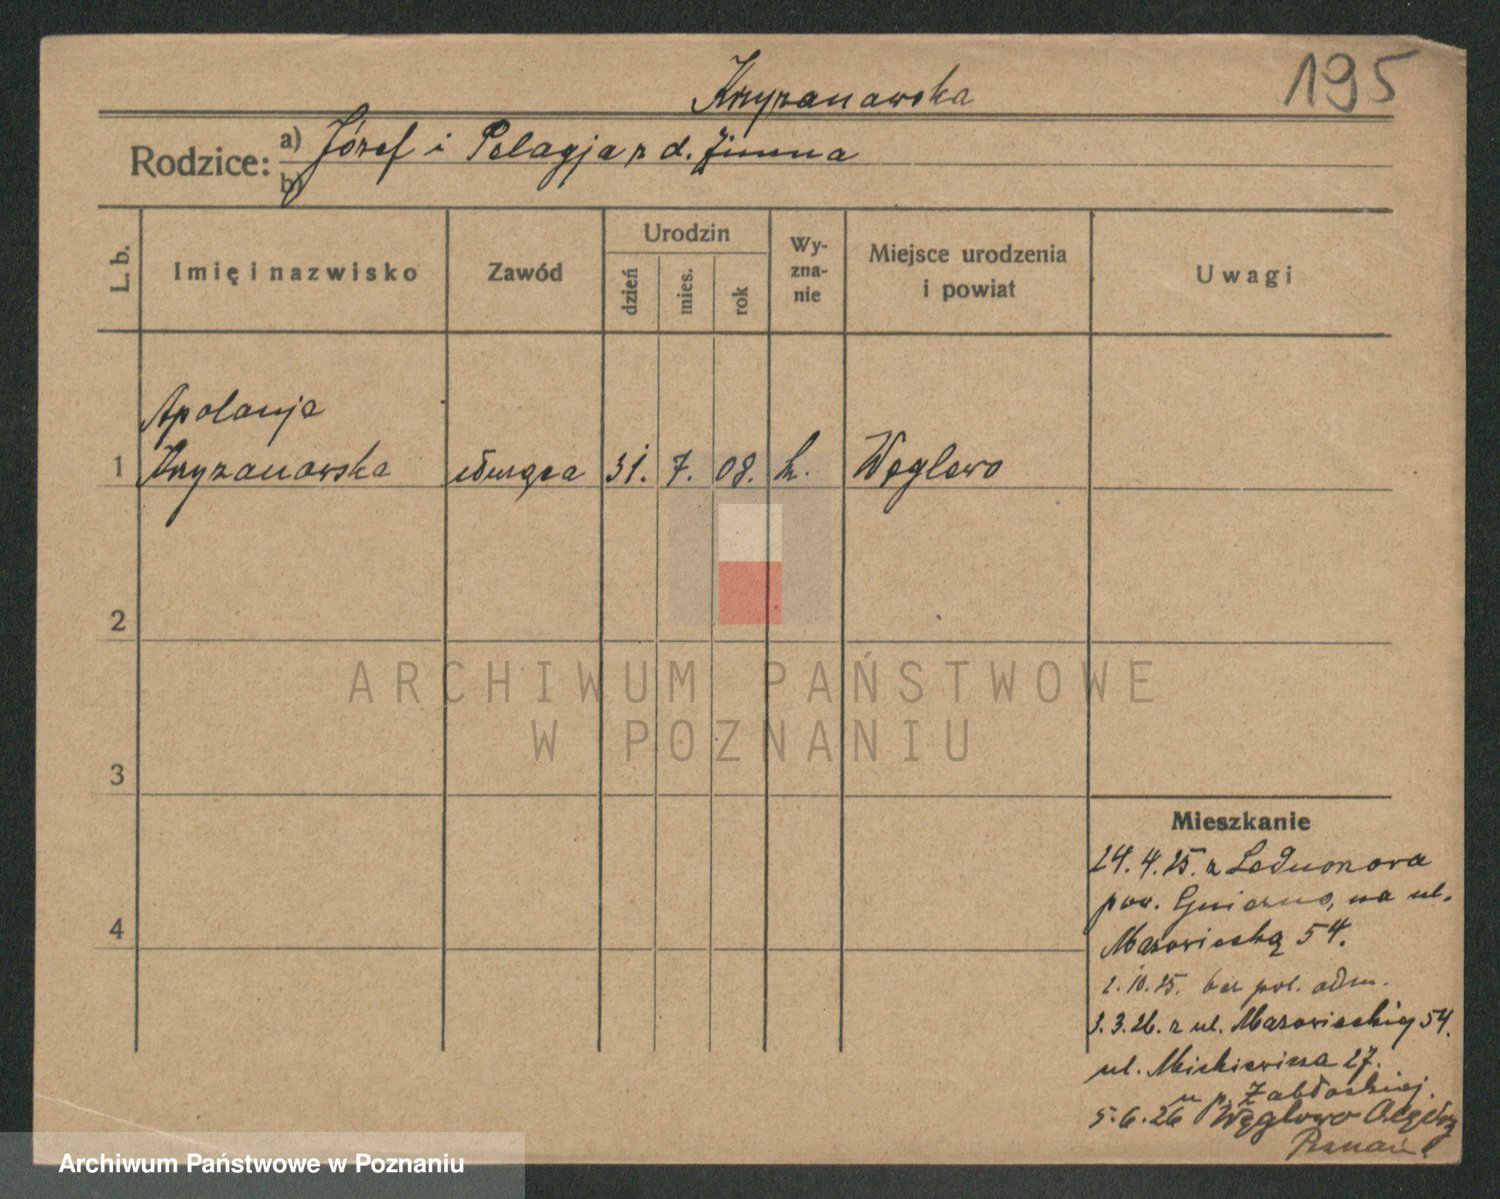 Krzyżanowska
195
Rodzice:
a) Józef i Pelagja z d. Zimna
b)
L. b.
Imię i nazwisko
Zawód
Urodzin
dzień
mies.
rok
Wy-
zna-
nie
Miejsce urodzenia
i powiat
Uwagi
Apolonja
1 Krzyżanowska służąca 31. 7. 08. k. Węglewo
2
3
4
Mieszkanie
24. 4. 25. z Lednogora
pow. Gniezno, na ul.
Mazowiecką 54.
2. 10. 25. bez pol. adm.
3. 3. 26. z ul. Mazowieckiej 54.
ul. Mickiewicza 27.
u p. Żabłockiej.
5. 6. 26 Węglewo
Poznań
ARCHIWUM PAŃSTWOWE
W POZNANIU
Archiwum Państwowe w Poznaniu